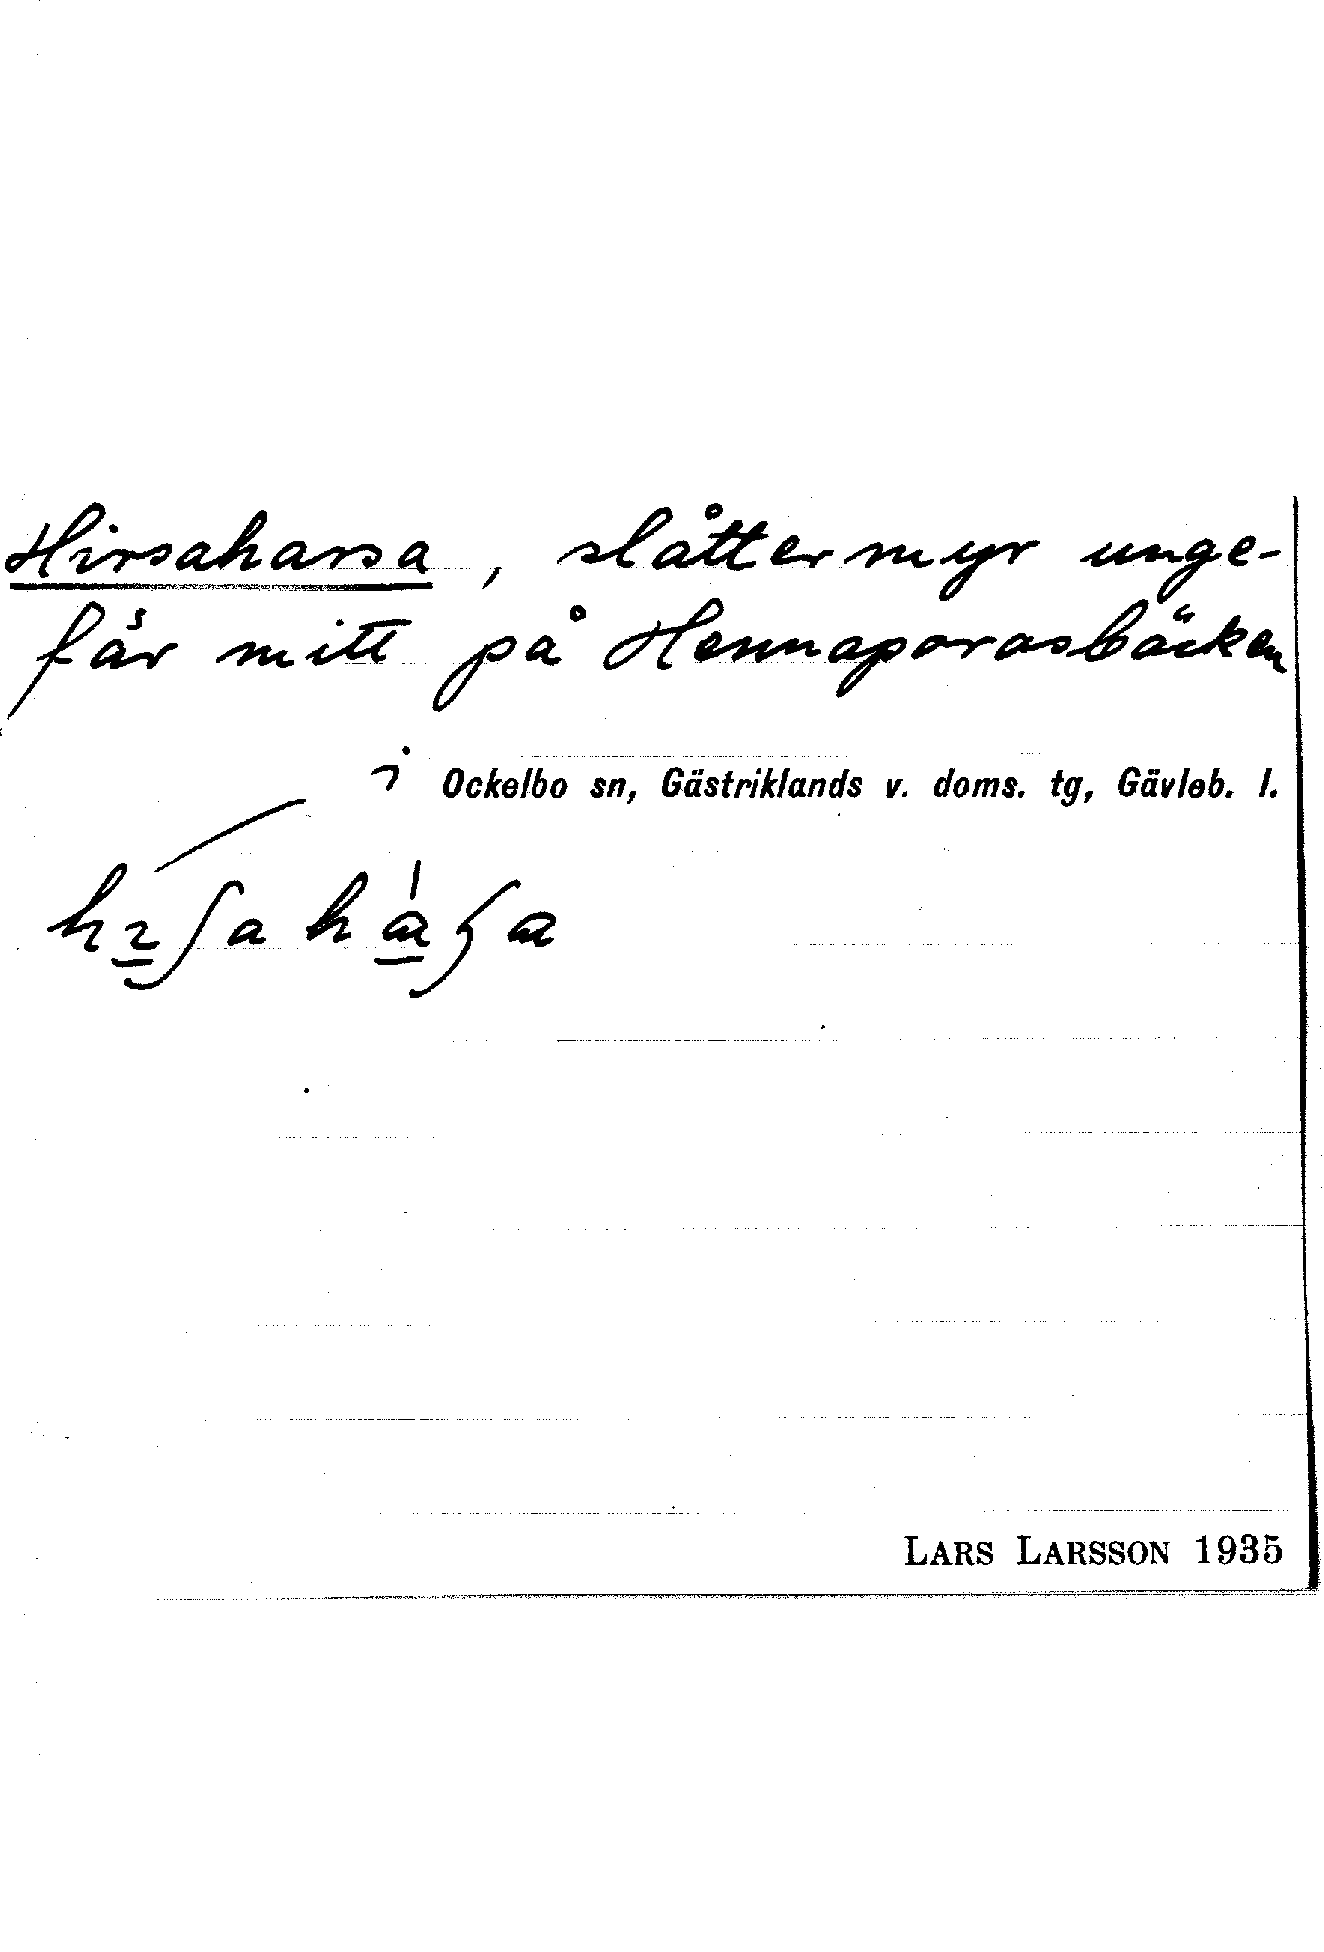 Hirsaharsa, slåttermyr unge-
fär mitt på Hennaporasbäcken
i Ockelbo sn, Gästriklands v. doms. tg, Gävleb. l.
LARS LARSSON 1935